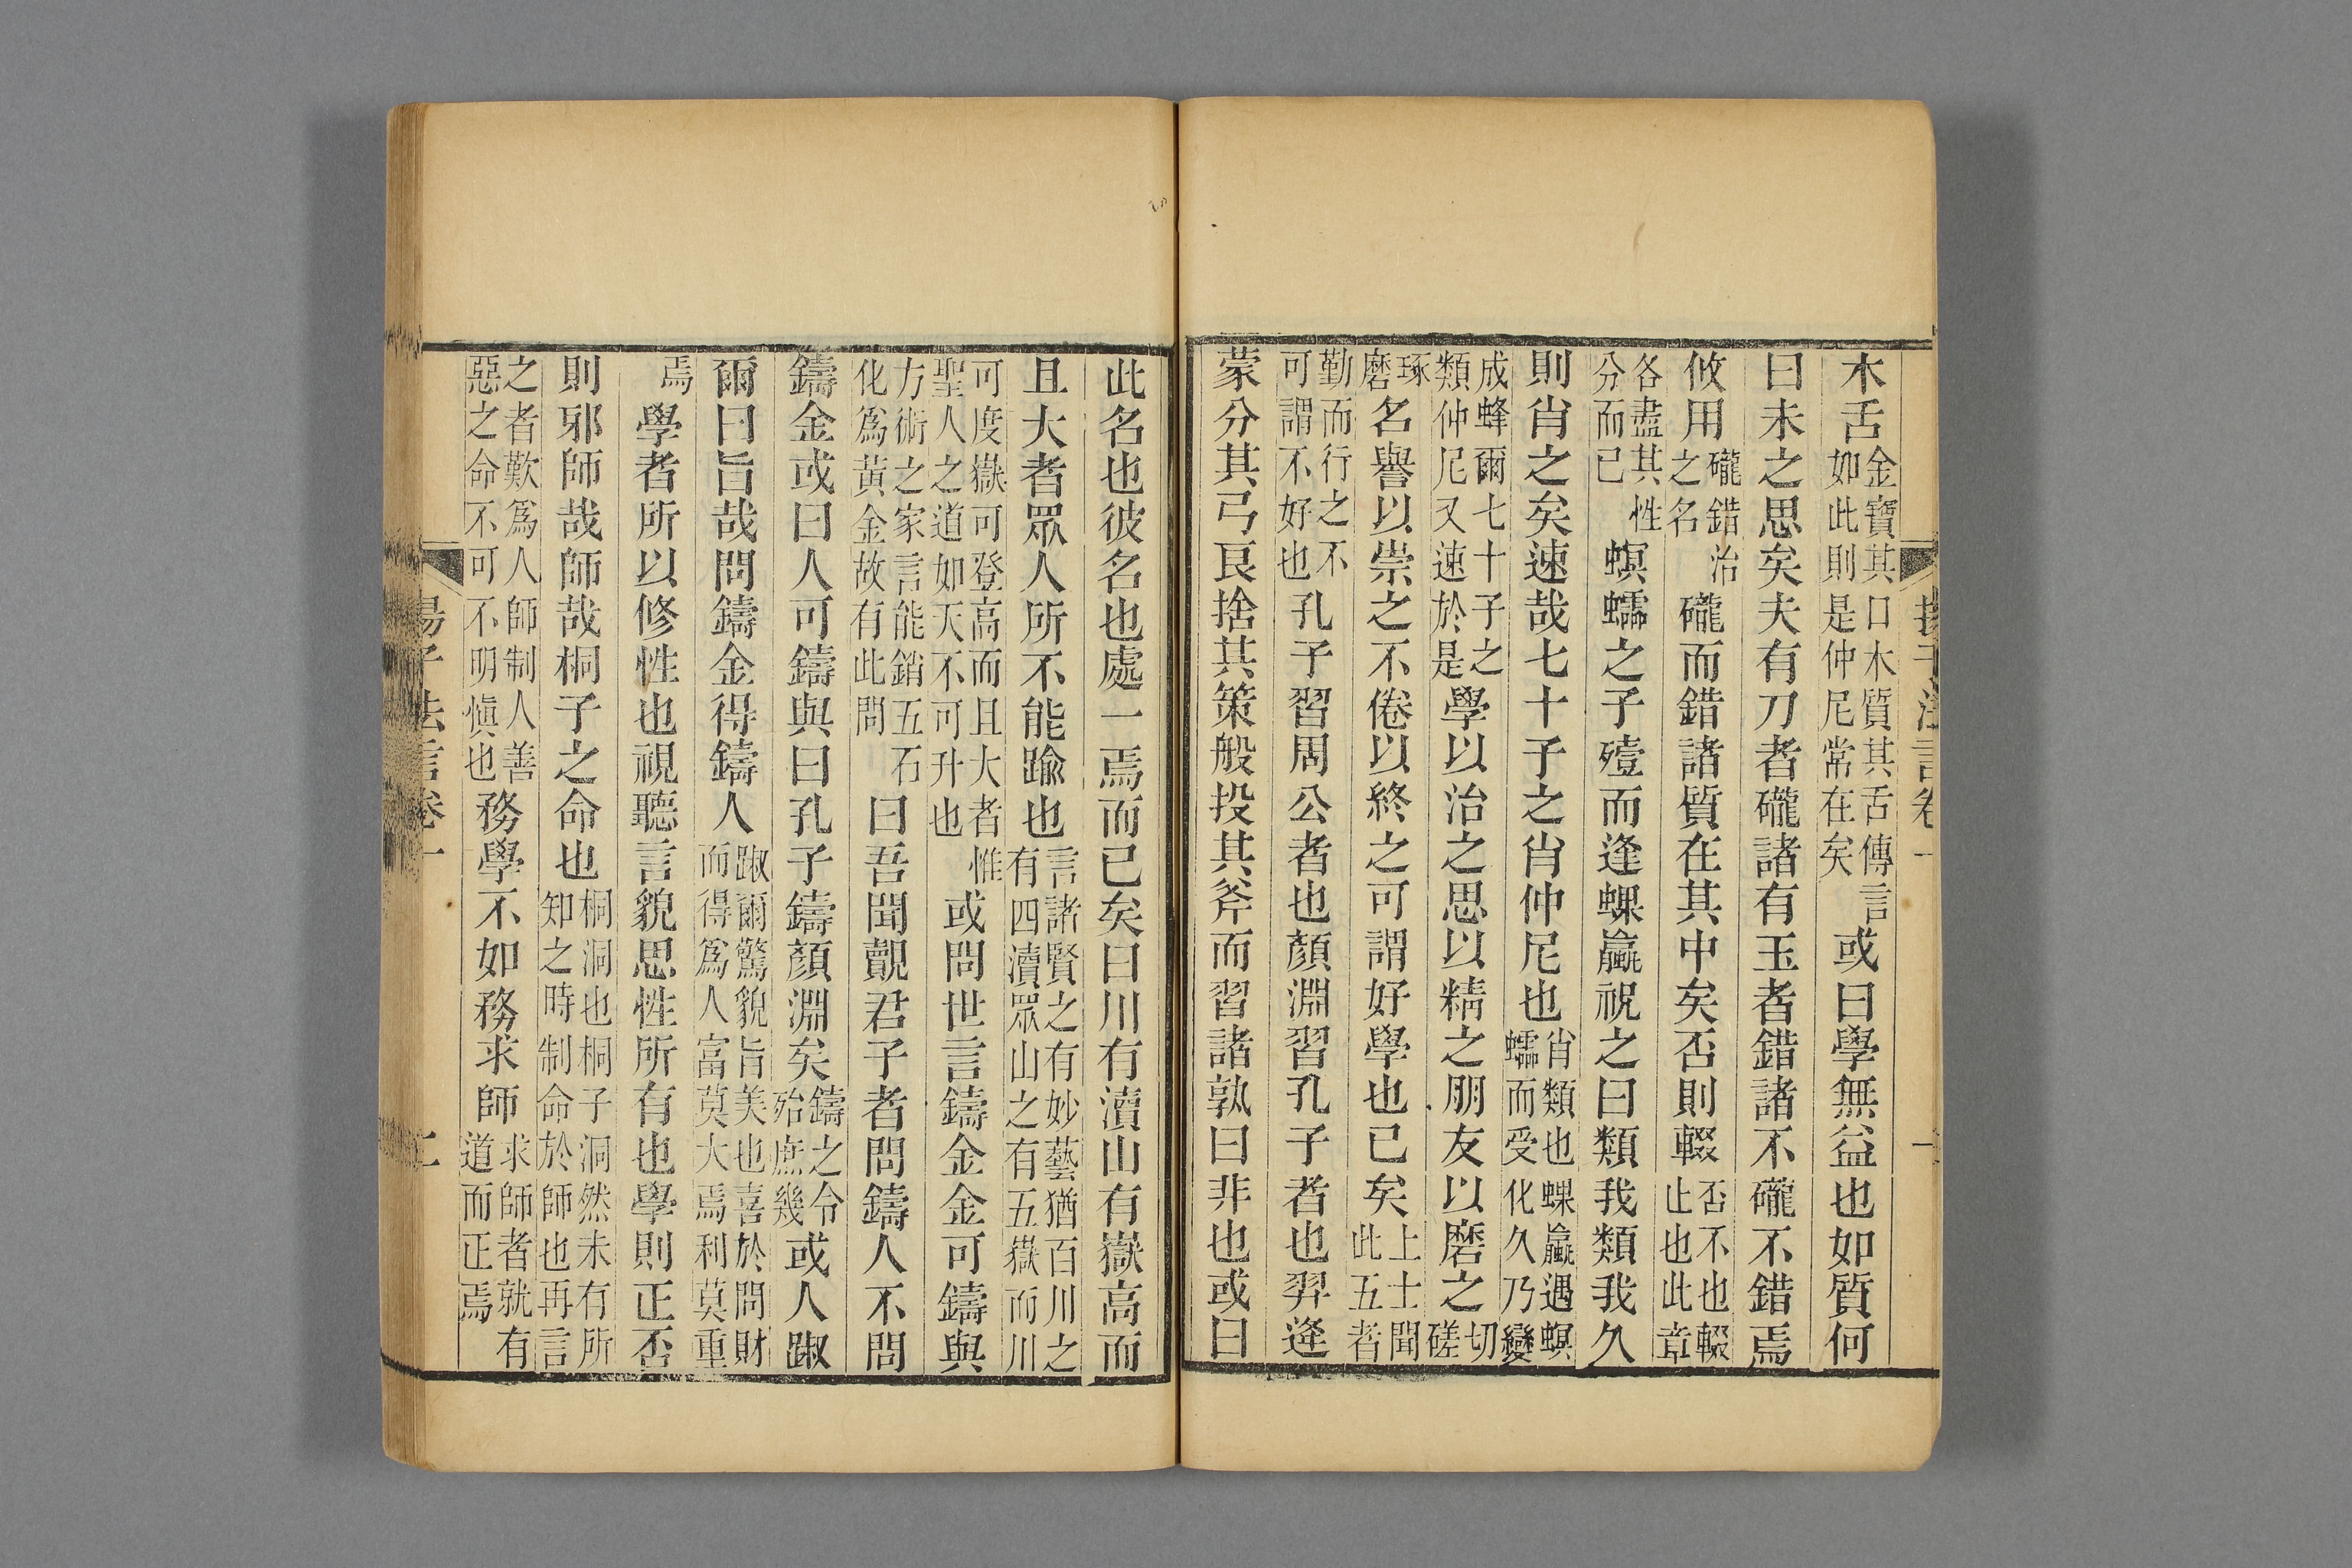 揚子法言卷一
木舌金寶其口木質其舌傳言如此則是仲尼常在矣或曰學無益也如質何
曰未之思矣夫有刀者礲諸有玉者錯諸不礲不錯焉
攸用礲錯治之名礲而錯諸質在其中矣否則輟否不也輟止也此章
各盡其性分而已螟蠕之子殪而逢蜾蠃祝之曰類我類我久
則肖之矣速哉七十子之肖仲尼也肖類也蜾蠃遇螟蠕而受化久乃變
成蜂爾七十子之類仲尼又速於是學以治之思以精之朋友以磨之切磋
琢磨名譽以崇之不倦以終之可謂好學也已矣上士聞此五者
勤而行之不可謂不好也孔子習周公者也顏淵習孔子者也羿逄
蒙分其弓良捨其策般投其斧而習諸孰曰非也或曰
此名也彼名也處一焉而已矣曰川有瀆山有嶽高而
且大者眾人所不能踰也言諸賢之有妙藝猶百川之有四瀆眾山之有五嶽而川
可度嶽可登高而且大者惟聖人之道如天不可升也或問世言鑄金金可鑄與
方術之家言能銷五石化為黃金故有此問曰吾聞覿君子者問鑄人不問
鑄金或曰人可鑄與曰孔子鑄顏淵矣鑄之令殆庶幾或人踧
爾曰旨哉問鑄金得鑄人踧爾驚貌旨美也喜於問財而得為人富莫大焉利莫重
焉學者所以修性也視聽言貌思性所有也學則正否
則邪師哉師哉桐子之命也桐洞也桐子洞然未有所知之時制命於師也再言
之者歎為人師制人善惡之命不可不明慎也務學不如務求師求師者就有道而正焉
揚子法言卷一 二